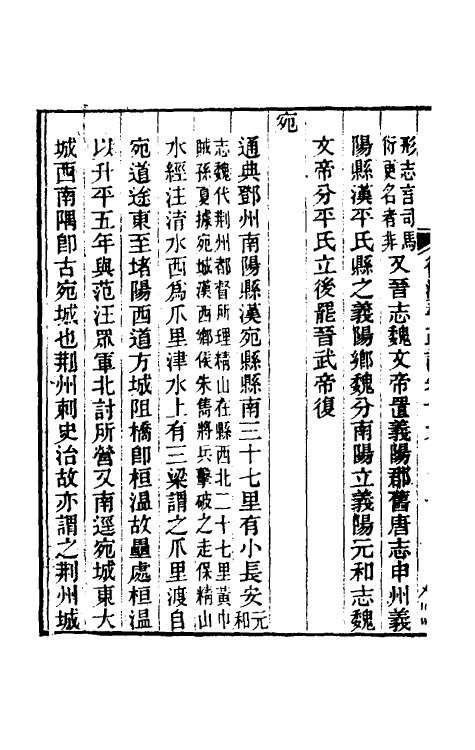 形志言司馬衍更名者非又晉志魏文帝置義陽郡舊唐志申州義
陽縣漢平氏縣之義陽鄉魏分南陽立義陽元和志魏
文帝分平氏立後罷晉武帝復
宛
通典鄧州南陽縣漢宛縣縣南三十七里有小長安元和
志魏代荆州都督所理精山在縣西北二十七里黃巾
賊孫夏據宛城漢西鄉侯朱儁將兵擊破之走保精山
水經注淯水西爲爪里津水上有三梁謂之爪里渡自
宛道途東至堵陽西道方城阻橋卽桓温故壘處桓温
以升平五年與范汪眾軍北討所營又南逕宛城東大
城西南隅卽古宛城也荆州刺史治故亦謂之荆州城